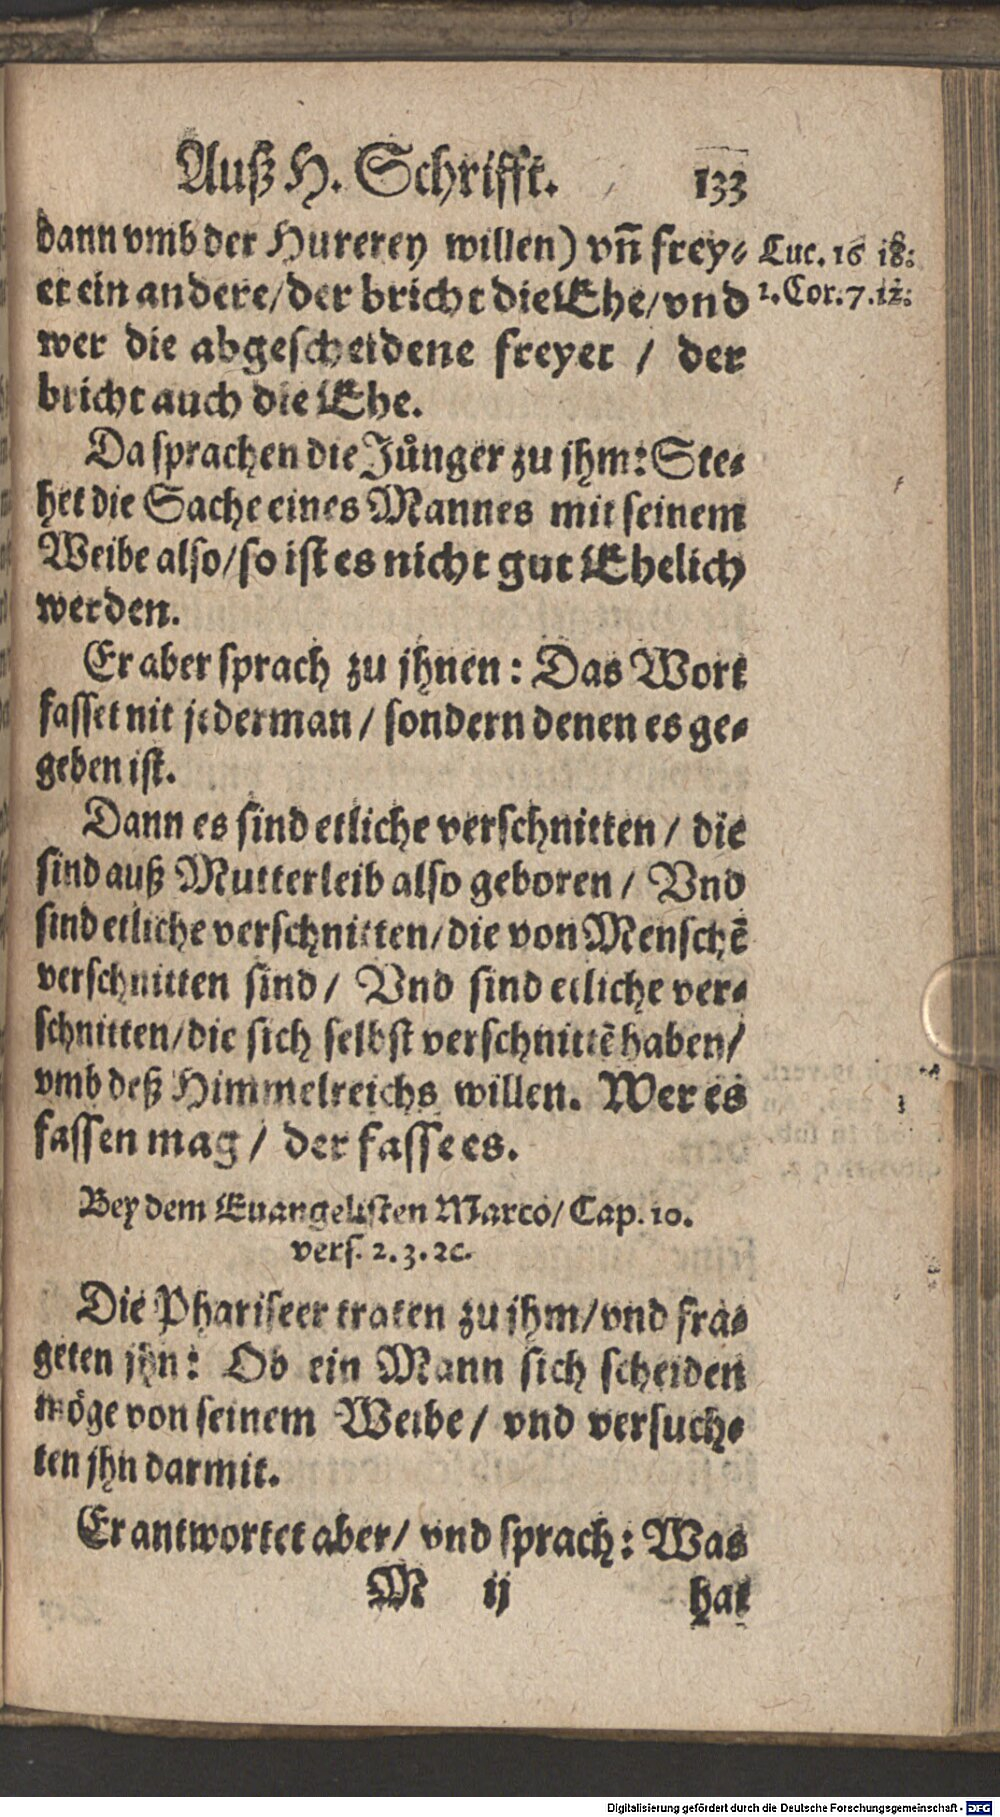 Auß H. Schrifft. 133
dann vmb der Hurerey willen) vñ frey⸗ Luc. 16 18:
et ein andere/der bricht die Ehe/vnd 1. Cor. 7. 12:
wer die abgescheidene freyet / der
bricht auch die Ehe.
Da sprachen die Jůnger zu jhm: Ste⸗
het die Sache eines Mannes mit seinem
Weibe also/so ist es nicht gut Ehelich
werden.
Er aber sprach zu jhnen: Das Wort
fasset nit jederman / sondern denen es ge⸗
geben ist.
Dann es sind etliche verschnitten / die
sind auß Mutterleib also geboren / Vnd
sind etliche verschnitten/die von Menschẽ
verschnitten sind / Vnd sind etliche ver⸗
schnitten/die sich selbst verschnittẽ haben/
vmb deß Himmelreichs willen. Wer es
fassen mag / der fasse es.
Bey dem Euangelisten Marco/ Cap. 10.
vers. 2. 3. ꝛc.
Die Phariseer traten zu jhm/vnd fra⸗
geten jhn: Ob ein Mann sich scheiden
möge von seinem Weibe / vnd versuch⸗
ten jhn darmit.
Er antwortet aber/ vnd sprach: Was
M ij hat
Digitalisierung gefördert durch die Deutsche Forschungsgemeinschaft - DFG